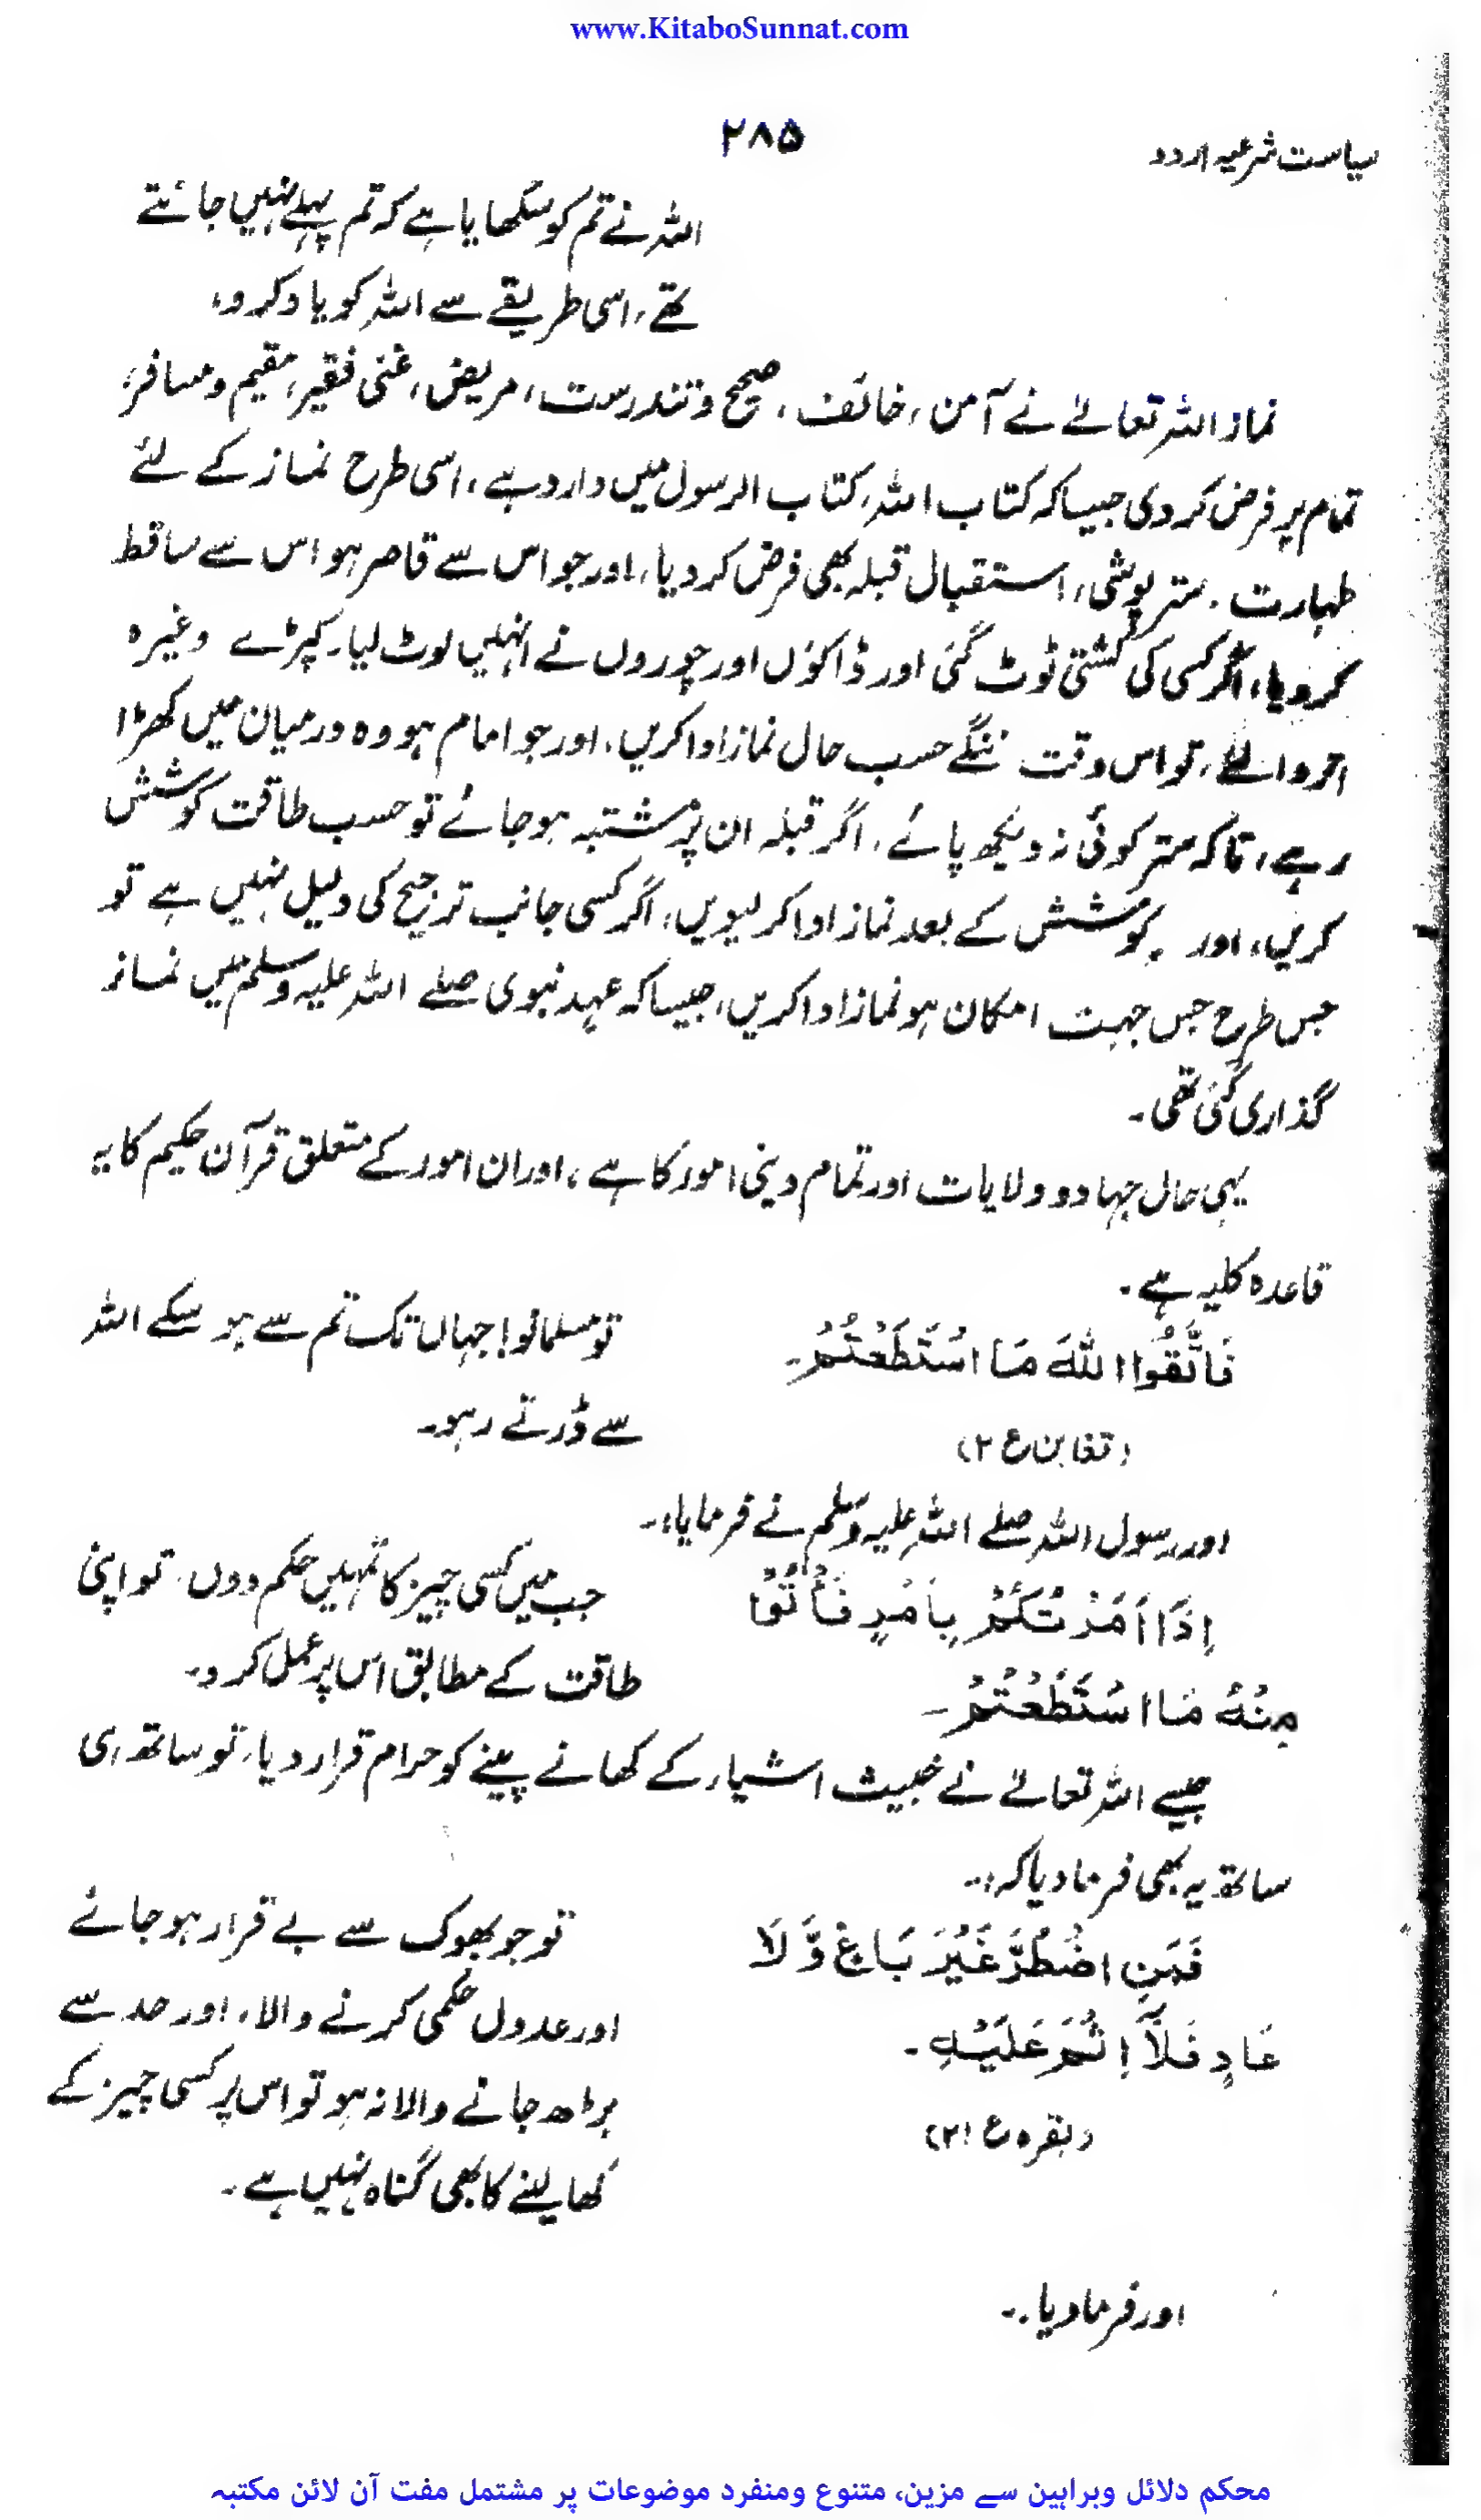 www.KitaboSunnat.com
سیاست شرعیہ اردو
۲۸۵
اللہ نے تم کو سکھایا ہے کہ تم پہلے نہیں جانتے
تھے، اسی طریقے سے اللہ کو یاد کرو،
نماز اللہ تعالےٰ نے آمن، خائف، صحیح و تندرست، مریض، غنی فقیر، مقیم و مسافر،
تمام پر فرض کر دی جیسا کہ کتاب اللہ، کتاب الرسول میں وارد ہے، اسی طرح نماز کے لئے
طہارت، ستر پوشی، استقبال قبلہ بھی فرض کر دیا، اور جو اس سے قاصر ہو اس سے ساقط
کر دیا، اگر کسی کی کشتی ٹوٹ گئی اور ڈاکوؤں اور چوروں نے انہیں لوٹ لیا، کپڑے وغیرہ
اتروا لئے، تو اس وقت ننگے حسب حال نماز ادا کریں، اور جو امام ہو وہ درمیان میں کھڑا
رہے، تاکہ ستر کوئی نہ دیکھ پائے، اگر قبلہ ان پر مشتبہ ہو جائے تو حسب طاقت کوشش
کریں، اور کوشش کے بعد نماز ادا کر لیویں، اگر کسی جانب ترجیح کی دلیل نہیں ہے تو
جس طرح جس جہت امکان ہو نماز ادا کریں، جیسا کہ عہد نبوی صلے اللہ علیہ وسلم میں نماز
گذاری گئی تھی۔
یہی حال جہاد و ولایات اور تمام دینی امور کا ہے، اور ان امور کے متعلق قرآن حکیم کا یہ
قاعدہ کلیہ ہے۔
فَاتَّقُوا اللهَ مَا اسْتَطَعْتُمْ۔
(تغابن ع ۲)
تو مسلمانو! جہاں تک تم سے ہو سکے اللہ
سے ڈرتے رہو۔
اور رسول اللہ صلے اللہ علیہ وسلم نے فرمایا:۔
اِذَا اَمَرْتُكُمْ بِاَمْرٍ فَأْتُوْا
مِنْهُ مَا اسْتَطَعْتُمْ۔
جب میں کسی چیز کا تمہیں حکم دوں، تو اپنی
طاقت کے مطابق اس پر عمل کرو۔
جیسے اللہ تعالےٰ نے خبیث اشیاء کے کھانے پینے کو حرام قرار دیا، تو ساتھ ہی
ساتھ یہ بھی فرما دیا کہ:۔
فَمَنِ اضْطُرَّ غَيْرَ بَاغٍ وَّلَا
عَادٍ فَلَآ اِثْمَ عَلَيْهِ۔
(بقرہ ع ۲۱)
تو جو بھوک سے بے قرار ہو جائے
اور عدول حکمی کرنے والا، اور حد سے
بڑھ جانے والا نہ ہو تو اس پر کسی چیز کے
کھا لینے کا بھی گناہ نہیں ہے۔
اور فرما دیا:۔
محکم دلائل وبراہین سے مزین، متنوع ومنفرد موضوعات پر مشتمل مفت آن لائن مکتبہ